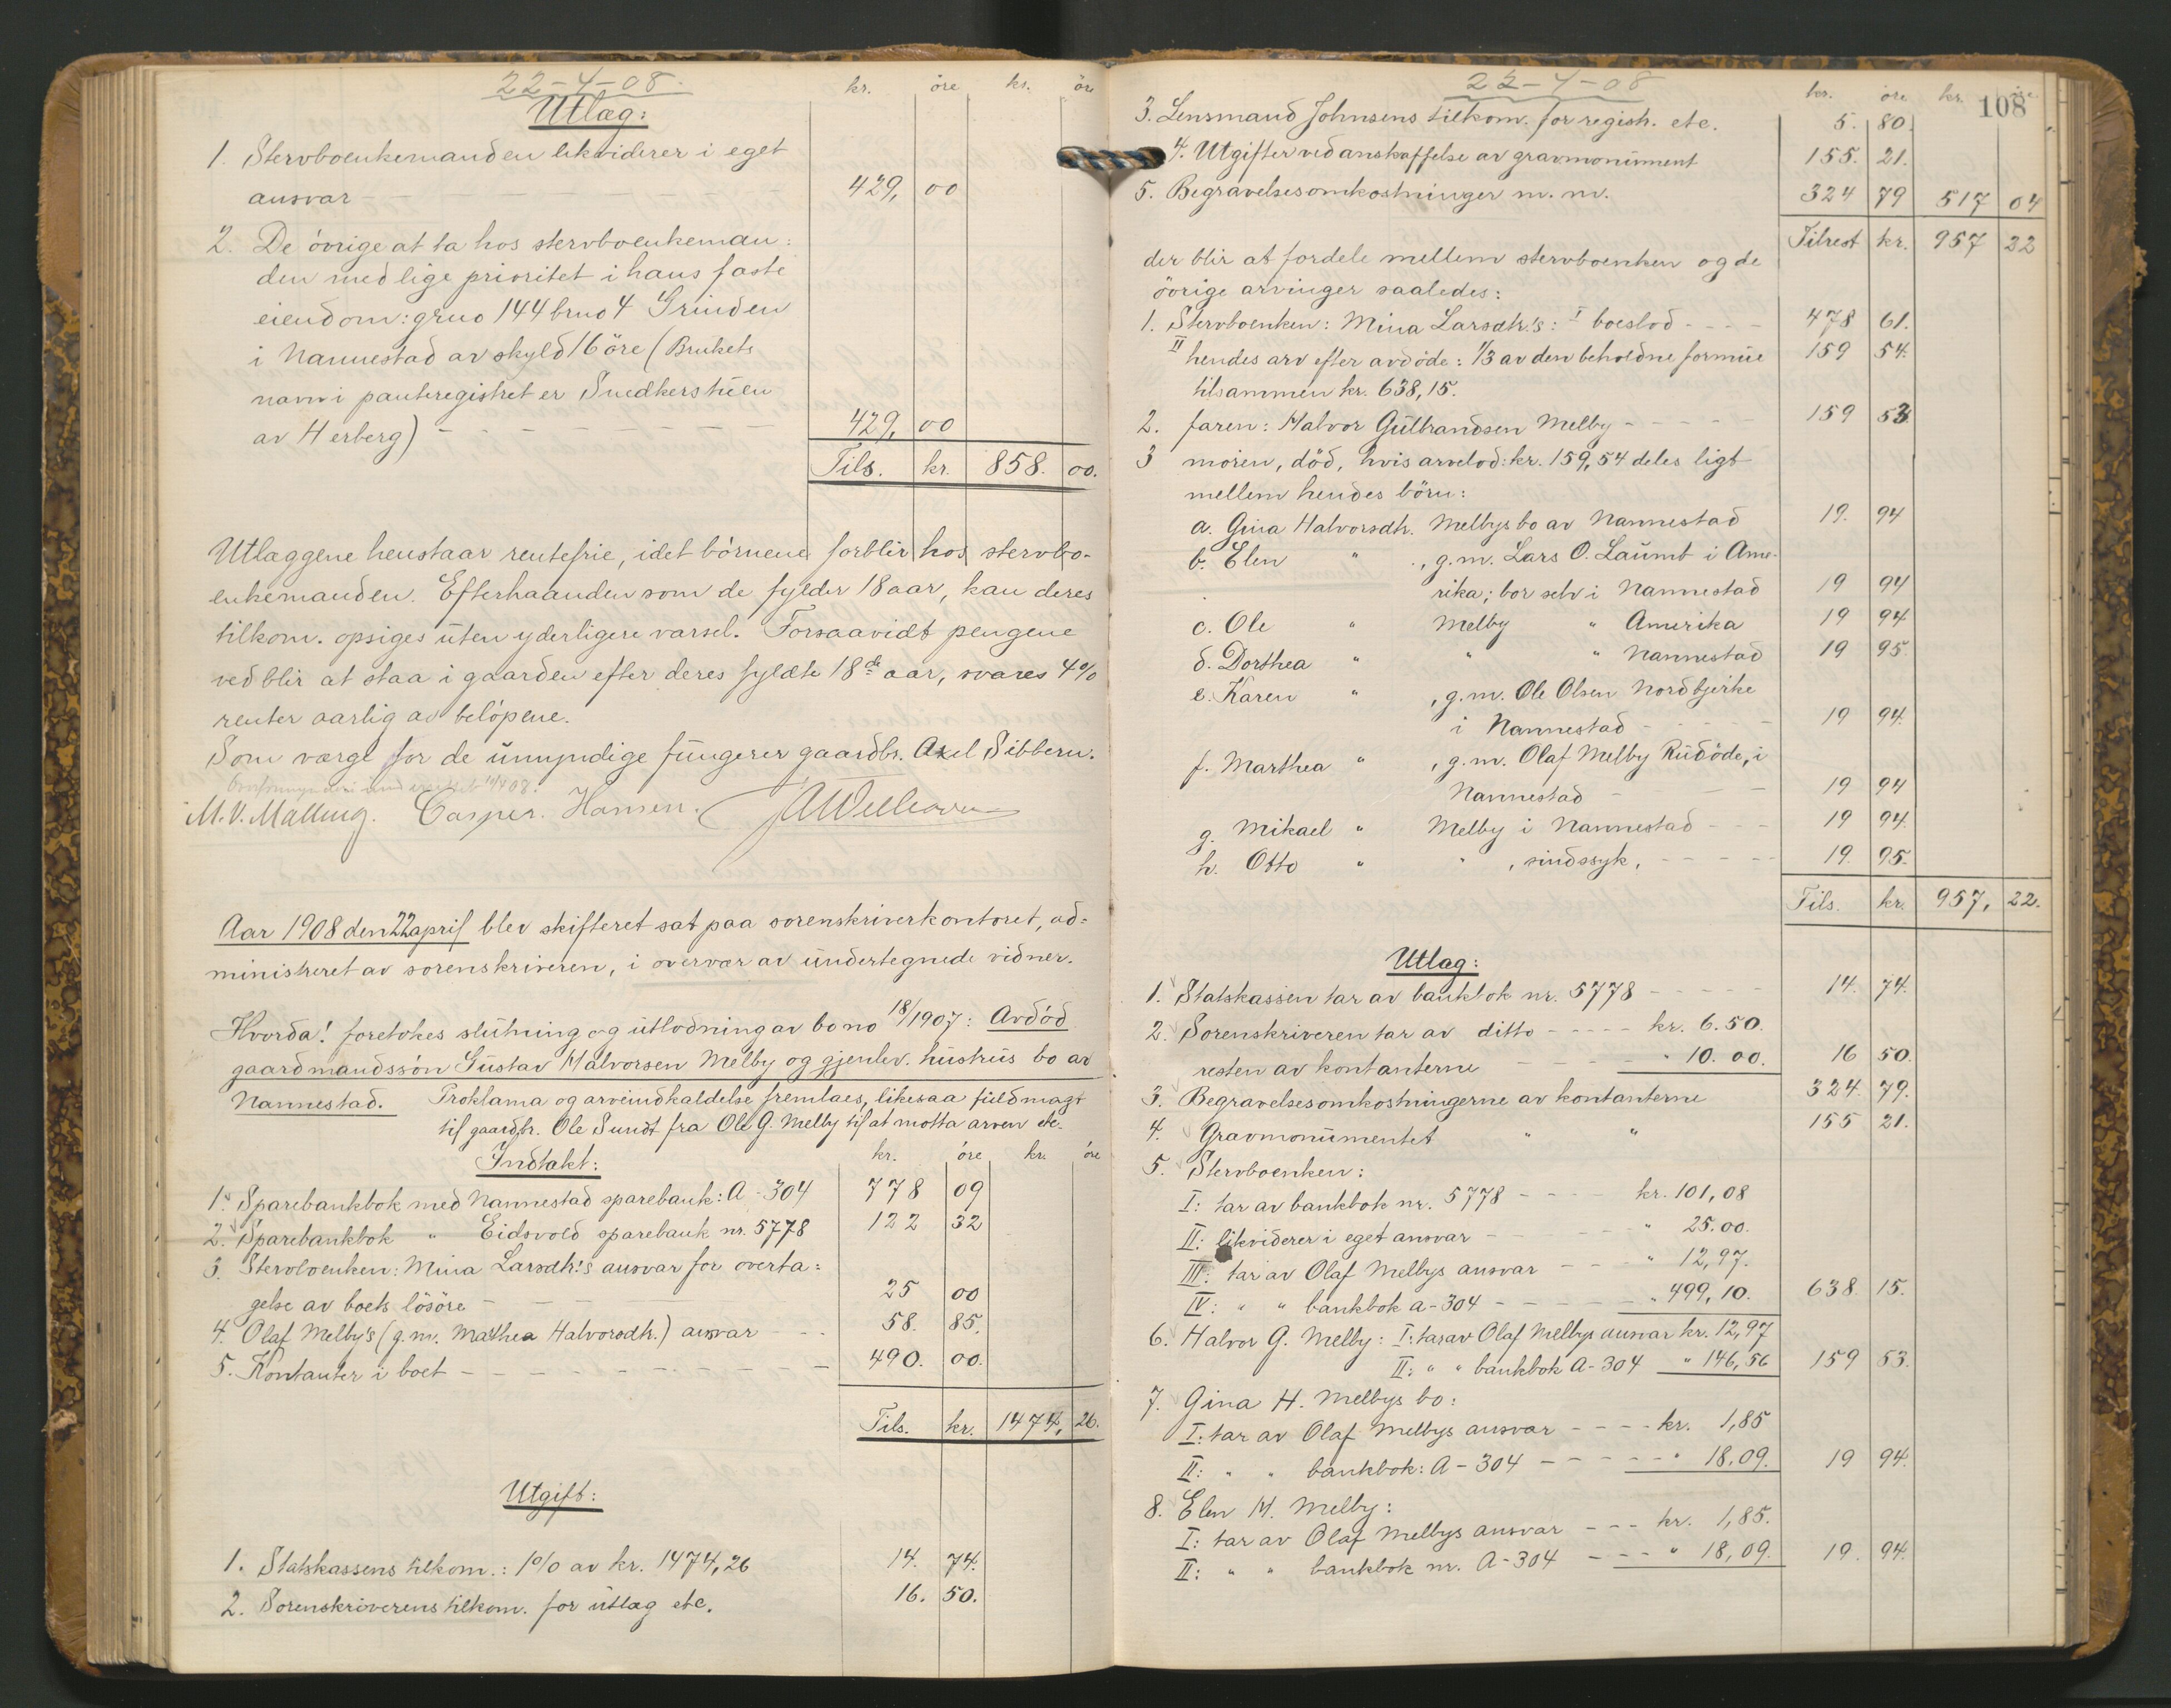 22-4-08.
kr. öre kr. öre
Utlæg:
1. Stervboenkemanden likviderer i eget
ansvar - - 429, 00
2. De övrige at ta hos stervboenkeman:
den med lige prioritet i hans faste
eiendom: gruo 144 bruo 4 Grinden
i Nannestad av skyld 16 öre (Brukets
navn i panteregistret er Snedkerstuen
av Herberg) - - - - - - - - - 429, 00
Tils. kr. 858. 00.
Utlæggene henstaar rentefrie, idet börnene forblir hos stervbo-
enkemanden. Efterhaanden som de fylder 18 aar, kan deres
tilkom. opsiges uten yderligere varsel. Forsaavidt pengene
vedblir at staa i gaarden efter deres fyldte 18de aar, svares 4%
renter aarlig av belöpene.
Som verge for de umyndige fungerer gaardbr. Axel Sibbern.
M. V. Malling. Casper. Hansen.
Aar 1908 den 22 april blev skifteret sat paa sorenskriverkontoret, ad-
ministreret av sorenskriveren, i overvær av undertegnede vidner.
Hvorda! foretokes slutning og utlodning av bo no 18/1907: Avdöd
gaardmandssön Gustav Halvorsen Melby og gjenlev. hustrus bo av
Nannestad. Proklama og arveindkaldelse fremlaes, likesaa fuldmagt
til gaardbr. Ole Sundt fra Ole G. Melby til at motta arven etc.
Indtækt: kr. öre kr. öre
1. Sparebankbok med Nannestad sparebank: A - 304 778 09
2. Sparebankbok " Eidsvold sparebank nr. 5778 122 32
3. Stervboenken: Mina Larsdtr.'s ansvar for overta:
gelse av boets lösöre - - - 25 00
4. Olaf Melby's (g. m. Marthea Halvorsdtr.) ansvar - - - 58. 85.
5. Kontanter i boet - - - - - - - - - 490. 00.
Tils. kr. 1474, 26.
Utgift:
1. Statskassens tilkom.: 1% av kr. 1474,26 14. 74.
2. Sorenskriverens tilkom. for utlæg etc. 16. 50.
22-4-08
kr. öre kr. öre
108
3. Lensmand Johnsens tilkom. for registr. etc. 5. 80.
4. Utgifter ved anskaffelse av gravmonument 155. 21.
5. Begravelsesomkostninger m. m. 324 79 517 04
Tilrest kr. 957 22
der blir at fordele mellem stervboenken og de
övrige arvinger saaledes:
1. Stervboenken: Mina Larsdtr.'s: I boeslod - - - - 478 61.
II hendes arv efter avdöde: 1/3 av den beholdne formue 159 54.
tilsammen kr. 638,15.
2. faren: Halvor Gulbrandsen Melby - - - - 159 53
3 moren, död, hvis arvelod: kr. 159,54 deles ligt
mellem hendes börn:
a. Gina Halvorsdtr. Melbys bo av Nannestad 19. 94
b. Elen " , g. m. Lars O. Laumb i Ame-
rika; bor selv i Nannestad 19 94
c. Ole " Melby " Amerika 19 94
d. Dorthea " " " Nannestad 19 95.
e. Karen " , g. m. Ole Olsen Nordbjerke
i Nannestad - - - - 19 94.
f. Marthea " , g. m. Olaf Melby Rudöde, i
Nannestad - - - 19 94
g. Mikael " Melby i Nannestad - - - 19 94.
h. Otto " " , sindssyk, - - - - - 19. 95.
Tils. kr. 957, 22.
Utlæg:
1. Statskassen tar av bankbok nr. 5778 - - - - - 14. 74.
2. Sorenskriveren tar av ditto - - - - - kr. 6.50.
resten av kontanterne - - - - " 10.00. 16 50.
3. Begravelsesomkostningerne av kontanterne 324. 79.
4. Gravmonumentet " " 155 21.
5. Stervboenken:
I: tar av bankbok nr. 5778 - - - - kr. 101,08
II: likviderer i eget ansvar - - - - - " 25.00.
III: tar av Olaf Melbys ansvar - - - " 12,97.
IV: " " bankbok a-304 - - - - - " 499,10. 638. 15.
6. Halvor G. Melby: I: tar av Olaf Melbys ansvar kr. 12,97
II: " " bankbok A-304 " 146,56 159 53.
7. Gina H. Melbys bo:
I: tar av Olaf Melbys ansvar - - - - kr. 1,85
II: " " bankbok: A-304 - - - - - " 18,09. 19 94.
8. Elen H. Melby:
I: tar av Olaf Melbys ansvar - - - kr. 1,85.
II: " " bankbok nr. A-304 - - - " 18,09. 19. 94.